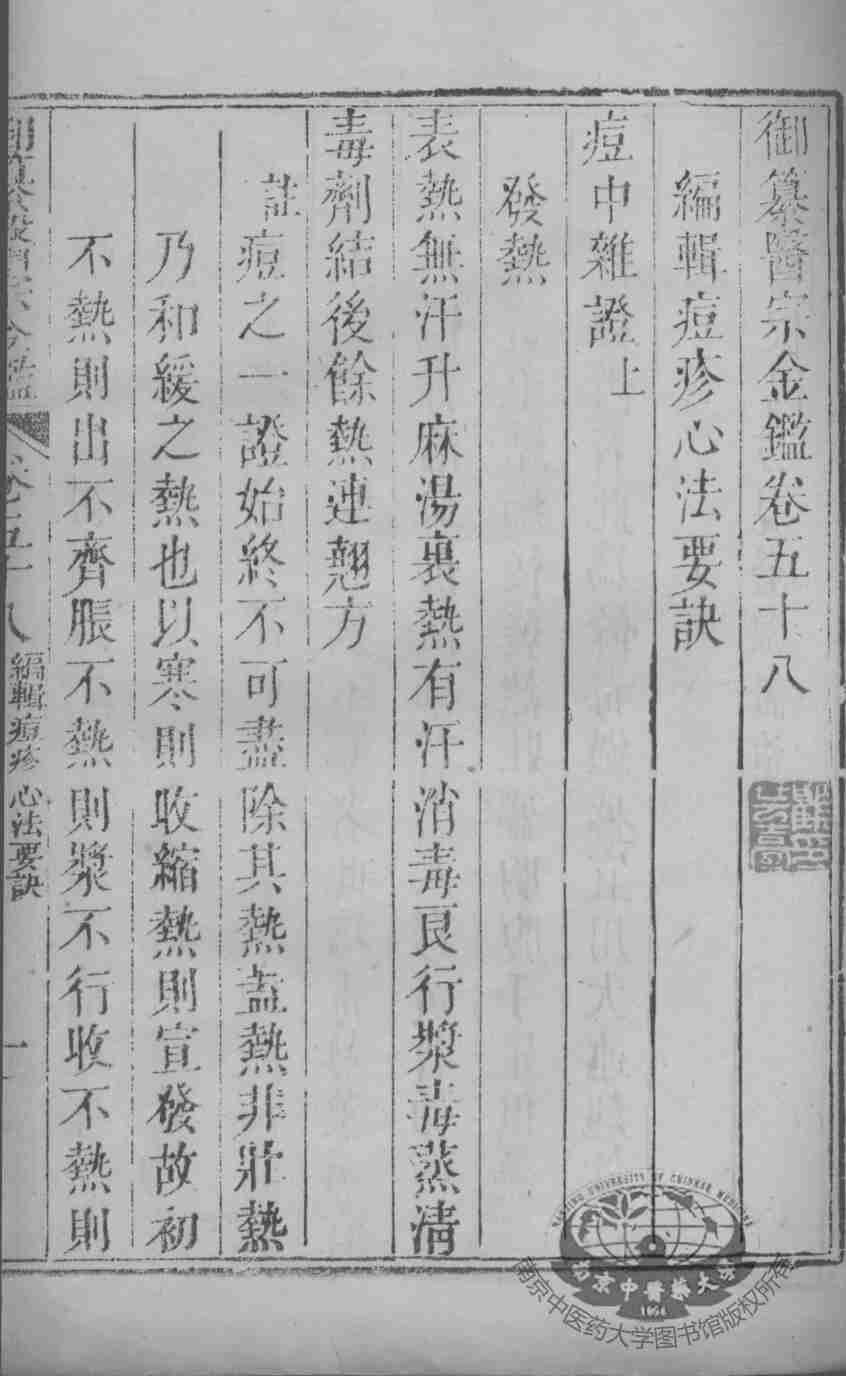 御纂醫宗金鑑卷五十八
編輯痘疹心法要訣
痘中雜證上
發熱
表熱無汗升麻湯裏熱有汗消毒良行漿毒蒸清
毒劑結後餘熱連翹方
註痘之一證始終不可盡除其熱盖熱非壯熱
乃和緩之熱也以寒則收縮熱則宣發故初
不熱則出不齊脹不熱則漿不行收不熱則
編輯痘疹心法要訣
一
NANJING UNIVERSITY OF CHINESE MEDICINE
南京中醫藥大學
1954
南京中医药大学图书馆版权所有